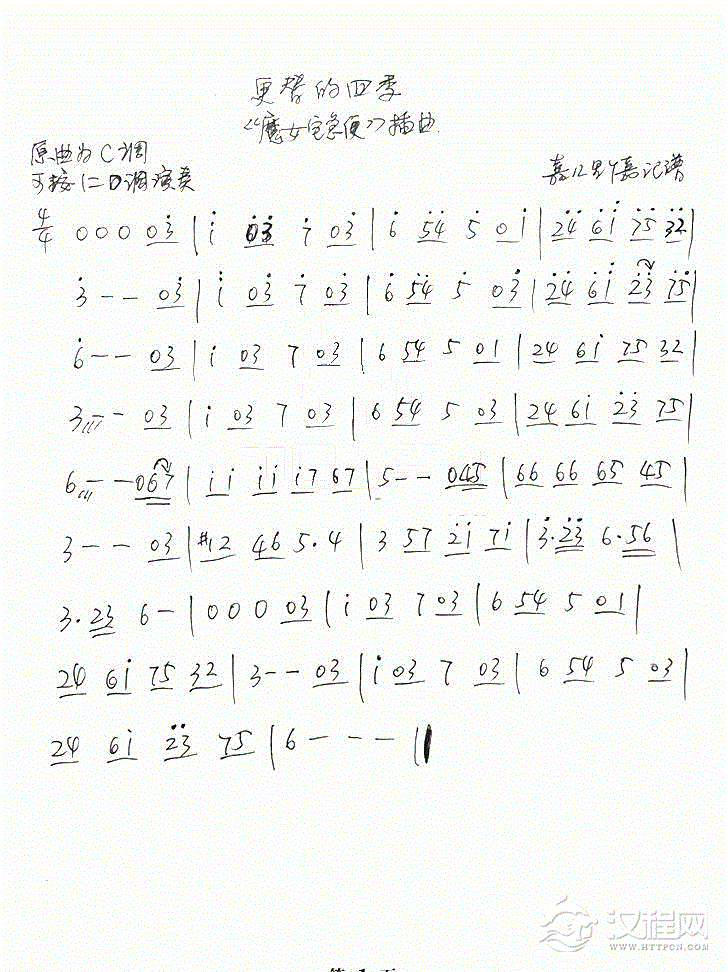 更替的四季
《魔女宅急便》插曲
原曲为C调
可按1=D调演奏
嘉 记谱
4/4 0 0 0 03̇ | i̇ 03̇ 7̇ 03̇ | 6̇ 5̇4̇ 5̇ 01̇ | 2̇4̇ 6̇i̇ 7̇5̇ 3̇2̇ |
3̇ - - 03̇ | i̇ 03̇ 7̇ 03̇ | 6̇ 5̇4̇ 5̇ 03̇ | 2̇4̇ 6̇i̇ 2̇3̇ 7̇5̇ |
6̇ - - 03 | i 03 7 03 | 6 54 5 01 | 24 6i 75 32 |
3 - - 03 | i 03 7 03 | 6 54 5 03 | 24 6i 2̇3̇ 75 |
6 - - 067 | i i i i i7 67 | 5 - - 045 | 66 66 65 45 |
3 - - 03 | #12 46 5·4 | 3 57 2̇i 7i | 3̇·2̇3̇ 6·56 |
3·23 6 - | 0 0 0 03 | i 03 7 03 | 6 54 5 01 |
24 6i 75 32 | 3 - - 03 | i 03 7 03 | 6 54 5 03 |
24 6i 2̇3̇ 75 | 6 - - - ||
汉程网
HTTPCN.COM